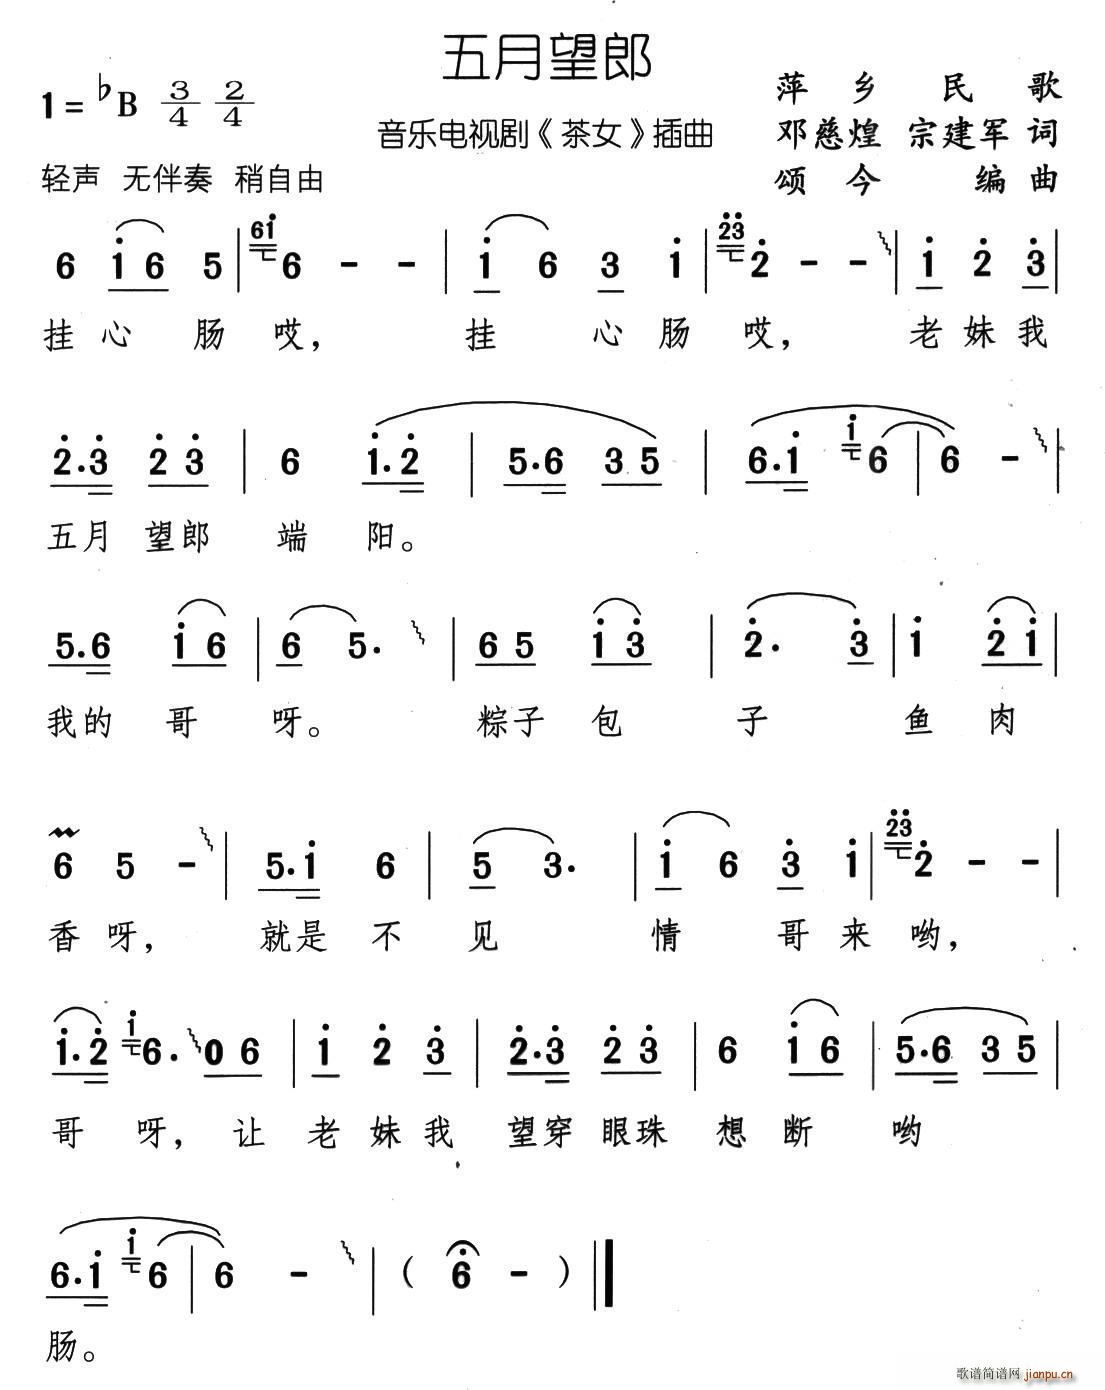 五月望郎
1=♭B 3/4 2/4
萍乡民歌
音乐电视剧《茶女》插曲
邓慈煌 宗建军 词
轻声 无伴奏 稍自由
颂今 编曲
6 i 6 5 | 61 6 - - | i 6 3 i | 23 2 - - | i 2 3 |
挂心肠哎， 挂心肠哎， 老妹我
2.3 2 3 | 6 i.2 | 5.6 3 5 | 6.i i 6 | 6 - |
五月望郎端阳。
5.6 i 6 | 6 5. | 6 5 i 3 | 2. 3 | i 2 i |
我的哥呀。 粽子包子鱼肉
6 5 - | 5.i 6 | 5 3. | i 6 3 i | 23 2 - - |
香呀， 就是不见情哥来哟，
i.2 i 6. 0 6 | i 2 3 | 2.3 2 3 | 6 i 6 | 5.6 3 5 |
哥呀， 让老妹我望穿眼珠想断哟
6.i i 6 | 6 - | ( 6 - ) ‖
肠。
歌谱简谱网 jianpu.cn